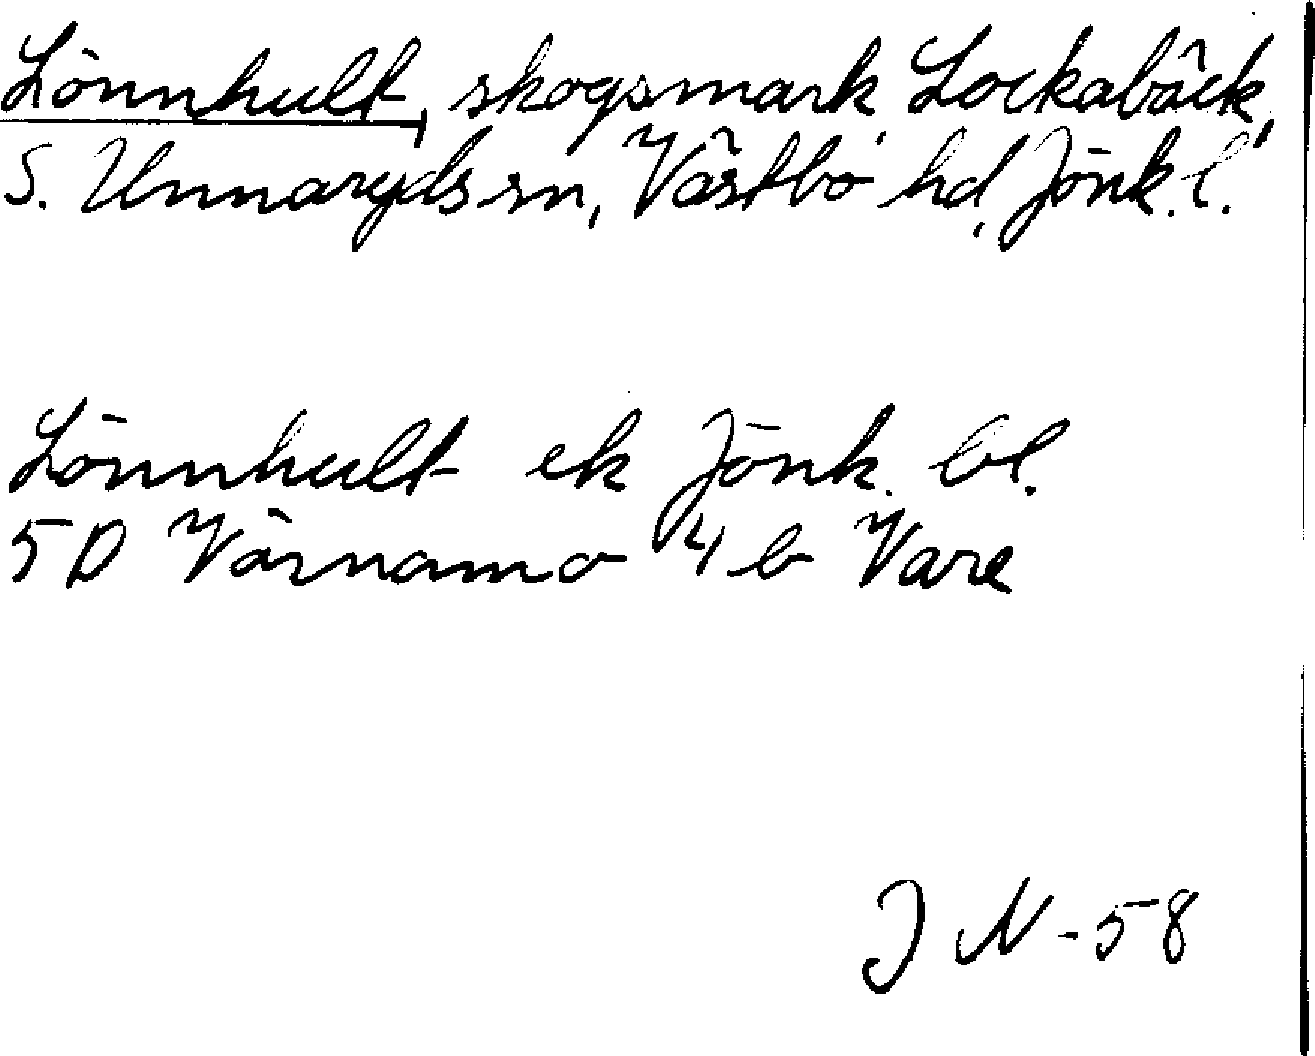 Lönnhult, skogsmark Lockabäck,
S. Unnaryds sn, Västbo hd, Jönk. l.
Lönnhult ek Jönk. bl.
5D Värnamo 4 b Vare
J N - 58